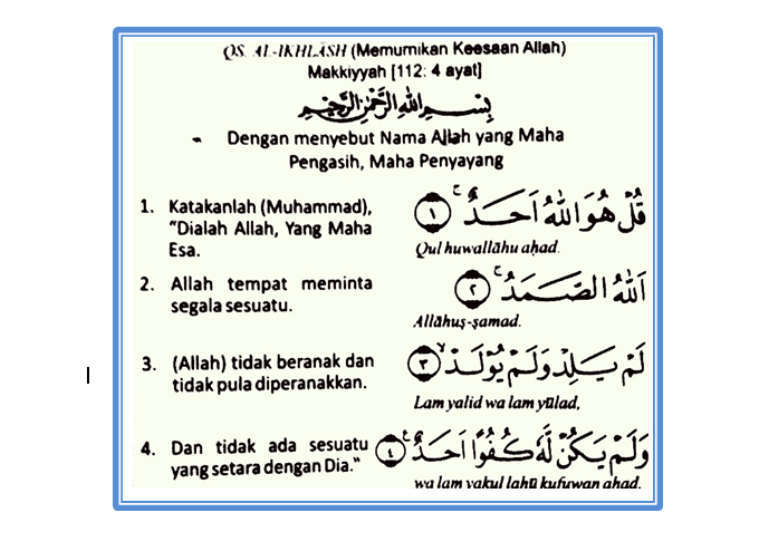 QS. AL-IKHLĀSH (Memumikan Keesaan Allah)
Makkiyyah [112: 4 ayat]
بِسْمِ اللّٰهِ الرَّحْمٰنِ الرَّحِيْمِ
Dengan menyebut Nama Allah yang Maha
Pengasih, Maha Penyayang
1. Katakanlah (Muhammad),
"Dialah Allah, Yang Maha
Esa.
قُلْ هُوَ اللّٰهُ اَحَدٌ ۚ ١
Qul huwallāhu aḥad.
2. Allah tempat meminta
segala sesuatu.
اَللّٰهُ الصَّمَدُ ۚ ٢
Allāhuṣ-ṣamad.
3. (Allah) tidak beranak dan
tidak pula diperanakkan.
لَمْ يَلِدْ وَلَمْ يُوْلَدْ ۙ ٣
Lam yalid wa lam yūlad,
4. Dan tidak ada sesuatu
yang setara dengan Dia."
وَلَمْ يَكُنْ لَّهٗ كُفُوًا اَحَدٌ ࣖ ٤
wa lam yakul lahū kufuwan aḥad.